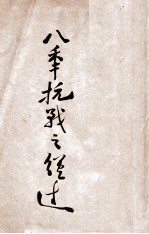 八年抗戰之經過